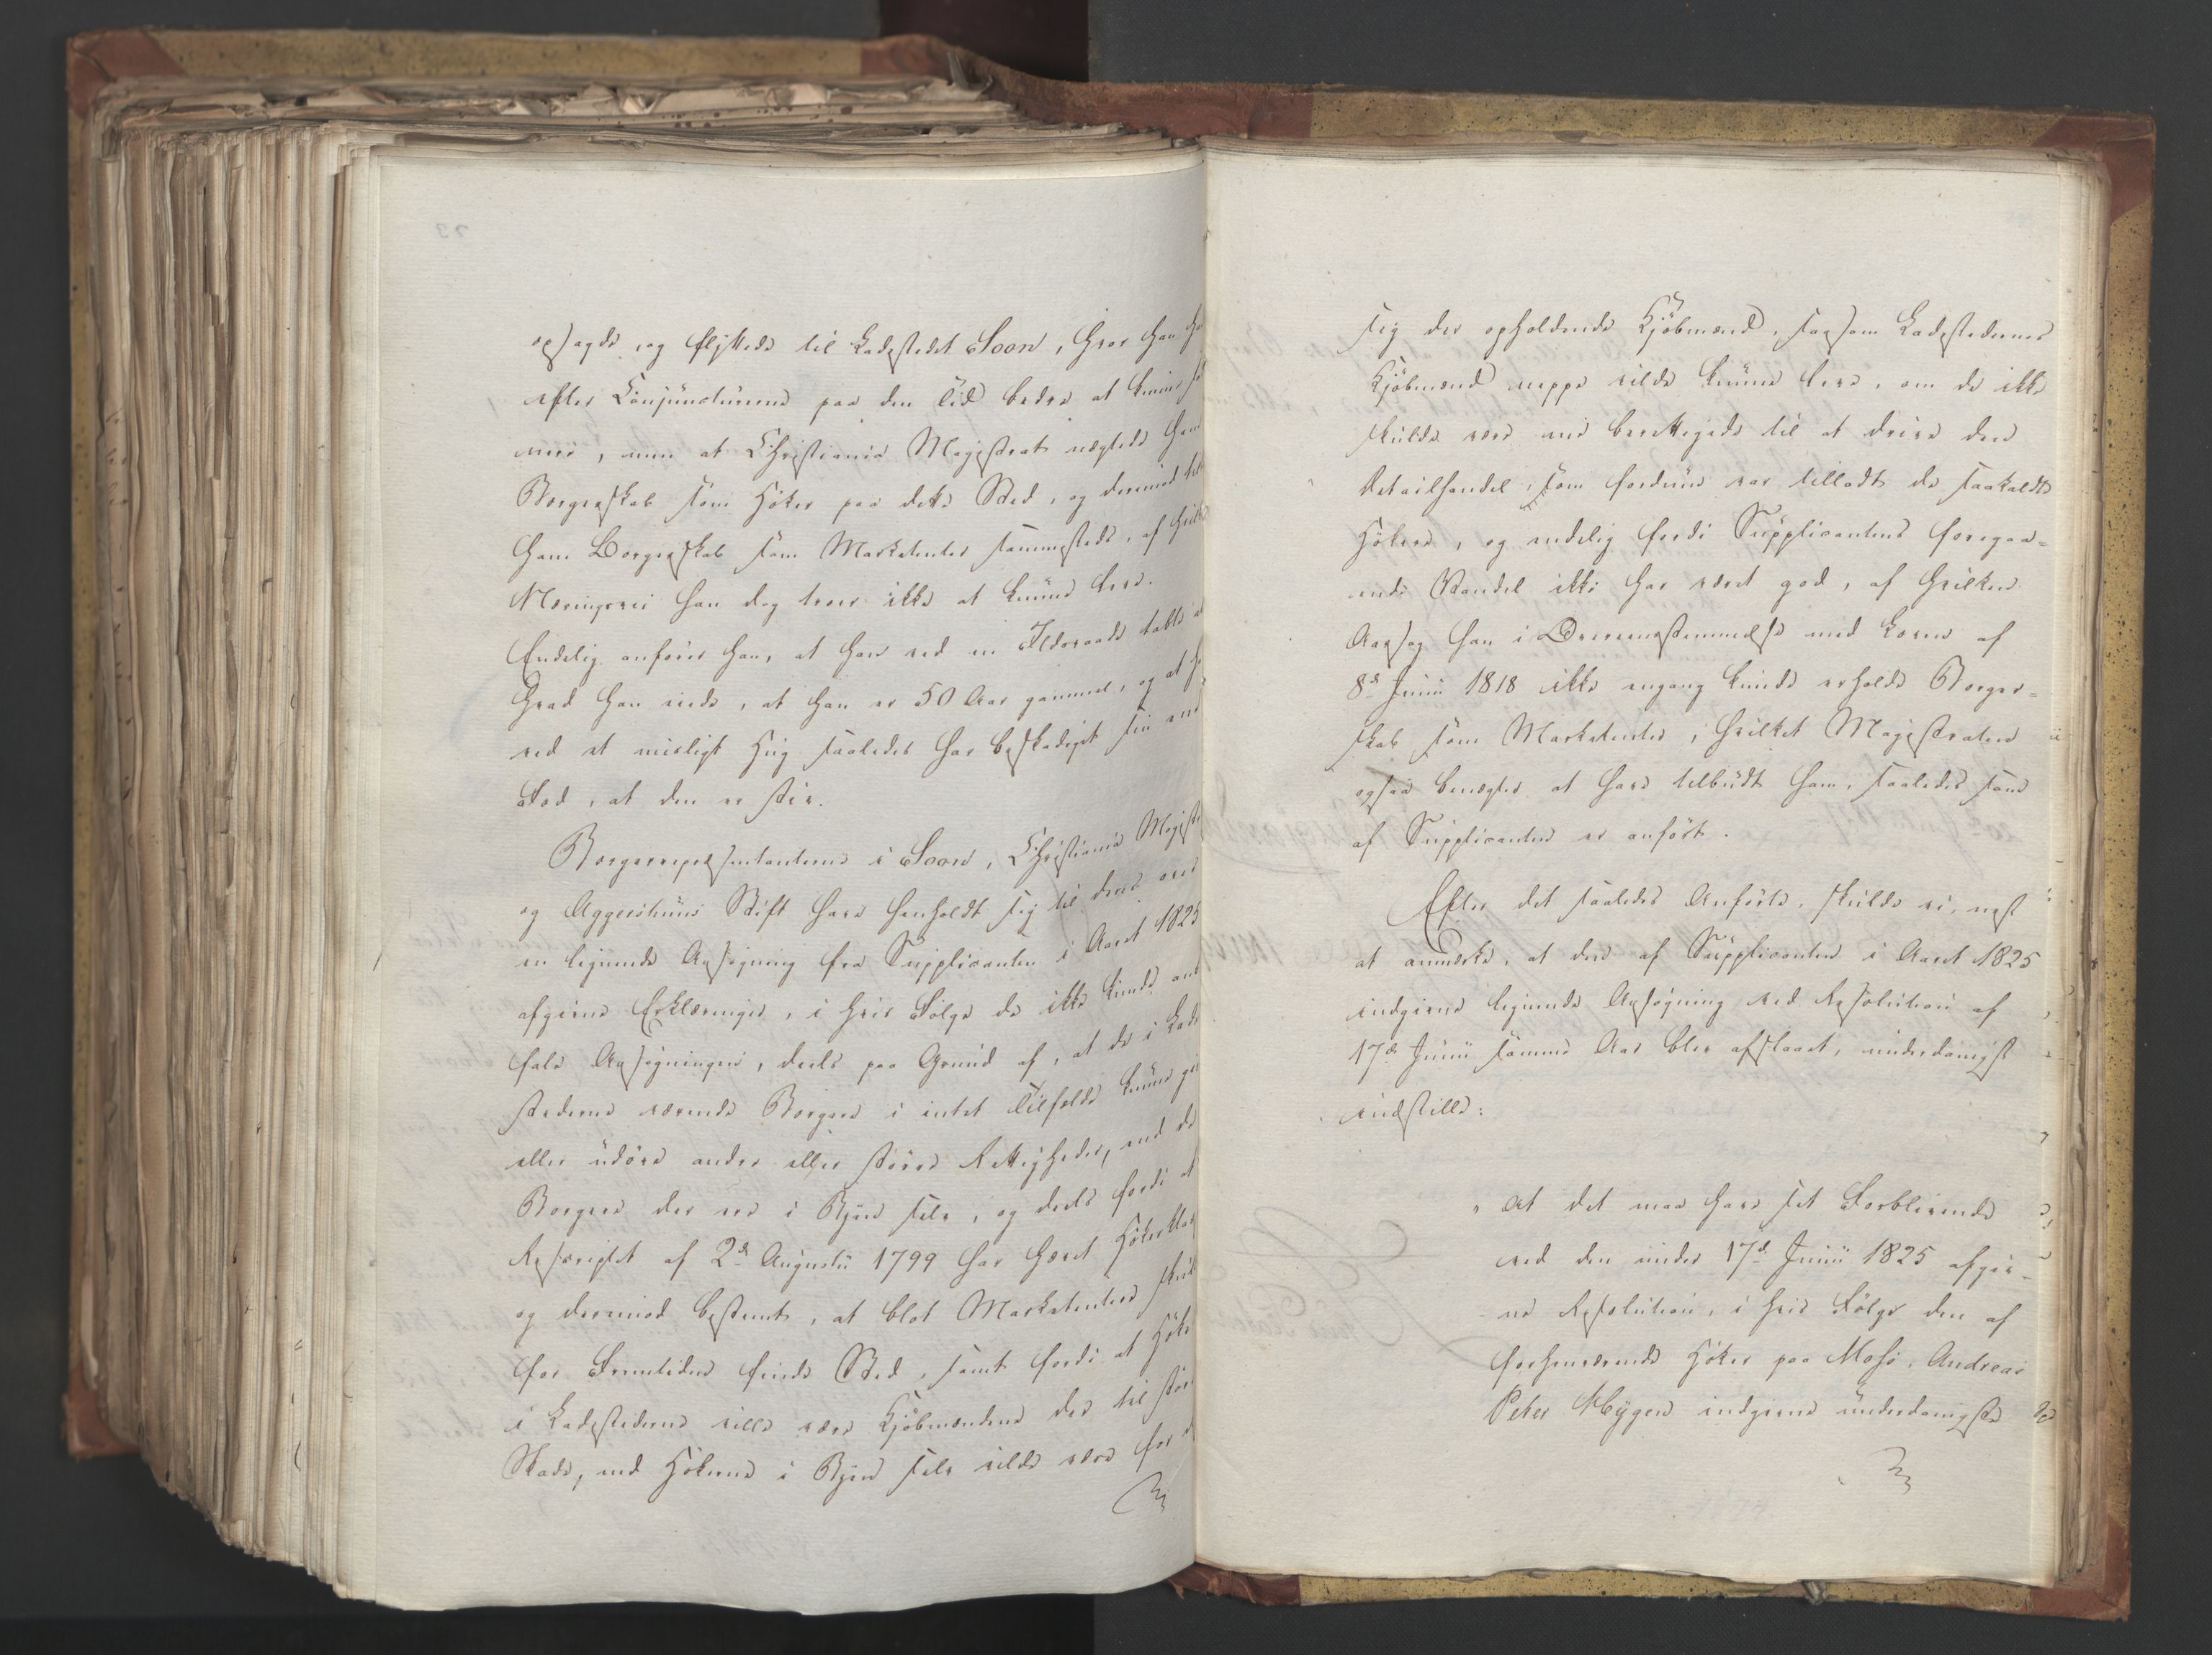 opsagde, og flyttede til Ladestedet Soon, hvor han
efter Conjuncturerne paa den Tid bedre at kunne
men, at Christiania Magistrat nægtede ham
Borgerskab som Høker paa dette Sted, og derimod
ham Borgerskab som Marketenter sammesteds, af
Næringsvei han dog troer ikke at kunne leve.
Endelig anfører han, at han ved en Ildsvaade tabte
hvad han eiede, at han er 50 Aar gammel, og at
ved et uvisligt Hug saaledes har beskadiget sin
Fod, at den er stiv.
Borgerrepræsentanterne i Soon, Christiania
og Aggershuus Stift have henholdt sig til deres over
en lignende Ansøgning fra Supplicanten i Aaret 1825
afgivne Erklæringer, i hvis Følge de ikke kunde
fale Ansøgningen, deels paa Grund af, at de i Lade
stederne værende Borgere i intet Tilfælde kunne
eller udøve andre eller større Rettigheder, end de
Borgere der ere i Byen selv, og deels fordi at
Rescriptet af 2de Augustii 1799 har hævet
og derimod bestemt, at blot Marketentere
for Fremtiden finde Sted, samt fordi at
i Ladestederne ville være Kjøbmændene der til
Skade, end Høkerne i Byen selv vilde være for
sig der opholdende Kjøbmænd, saasom Ladestedernes
Kjøbmænd neppe vilde kunne leve, om de ikke
skulde være ene berettigede til at drive den
Detailhandel, som fordum var tilladt de saakaldte
Høkere, og endelig fordi Supplicantens foregaa-
ende Vandel ikke har været god, af hvilken
Aarsag han i Overeensstemmelse med Loven af
8de Junii 1818 ikke engang kunde erholde Borger-
skab som Marketenter, hvilket Magistraten
ogsaa benægter at have tilbudt ham, saaledes som
af Supplicanten er anført.
Efter det saaledes Anførte, skulde vi, næst
at anmærke, at den af Supplicanten i Aaret 1825
indgivne lignende Ansøgning ved Resolution af
17de Junii samme Aar blev afslaaet, underdanigst
indstille:
" At det maa have sit Forblivende
ved den under 17de Junii 1825 afgiv-
ne Resolution, i hvis Følge den af
forhenværende Høker paa Moss, Andreas
Peter Hygen indgivne underdanigste